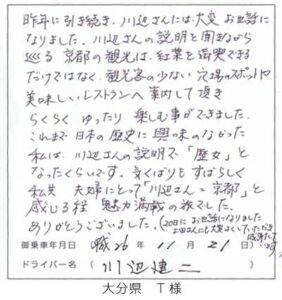 昨年に引き続き、川辺さんには大変お世話に
なりました。川辺さんの説明を聞きながら
巡る京都の観光は、紅葉を満喫できる
だけではなく、観光客の少ない穴場のスポットや
美味しいレストランへ案内して頂き
らくらくゆったり楽しむ事ができました。
これまで日本の歴史に興味のなかった
私は、川辺さんの説明で「歴女」と
なったくらいです。気くばりもすばらしく
私共夫婦にとって「川辺さん=京都」と
感じる程魅力満載の旅でした。
ありがとうございました。
(20日にお世話になりました
さんにも大変よくしていただき
感謝して
います)
御乗車年月日 平成26年11月21日
ドライバー名 (川辺建二
大分県 T様